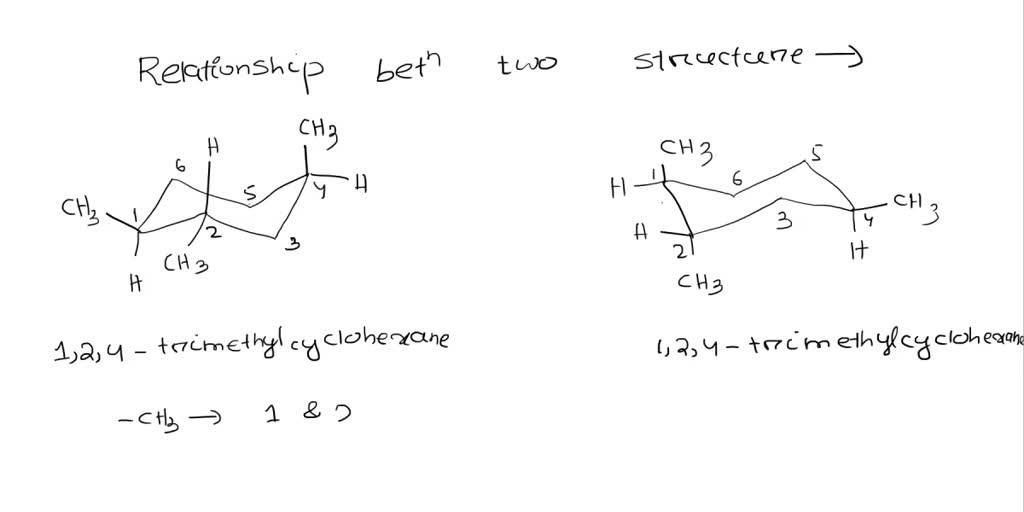 Relationship betn two structure →
CH3
H
6
5
4
H
CH3
1
2
3
CH3
H
CH3
5
H
1
6
CH3
H
3
4
2
H
CH3
1,2,4-trimethylcyclohexane
1,2,4-trimethylcyclohexane
-CH3 → 1 & 2